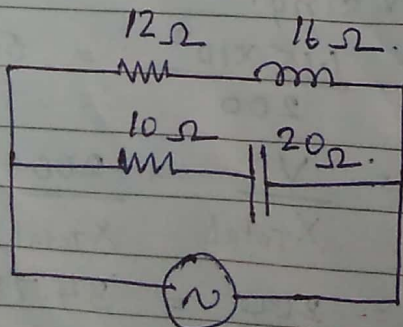 12Ω 16Ω.
10Ω 20Ω.